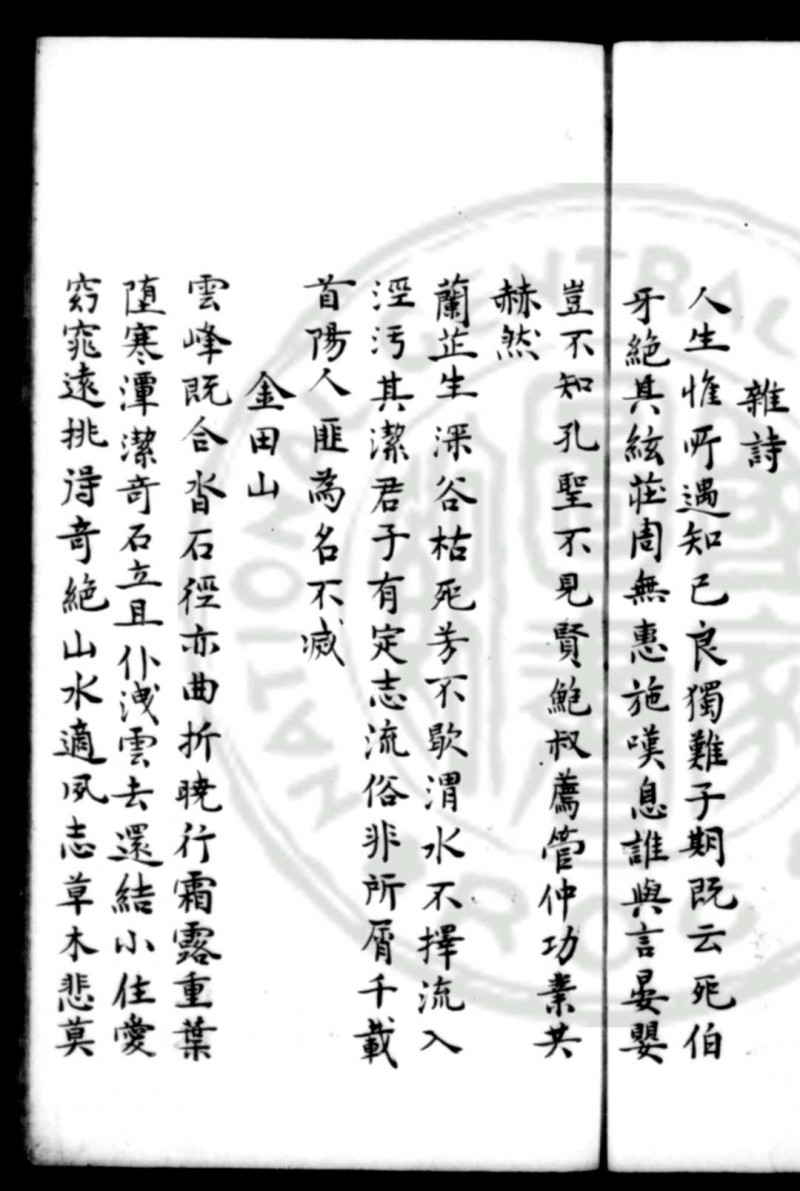 雜詩
人生惟所遇知己良獨難子期既云死伯
牙絶其絃莊周無惠施嘆息誰與言晏嬰
豈不知孔聖不見賢鮑叔薦管仲功業共
赫然
蘭芷生深谷枯死芳不歇渭水不擇流入
涇污其潔君子有定志流俗非所屑千載
首陽人匪為名不滅
金田山
雲峰既合沓石徑亦曲折曉行霜露重葉
墮寒潭潔奇石立且仆洩雲去還結小住愛
窈窕遠挑得奇絶山水適夙志草木悲莫
NATIONAL CENTRAL